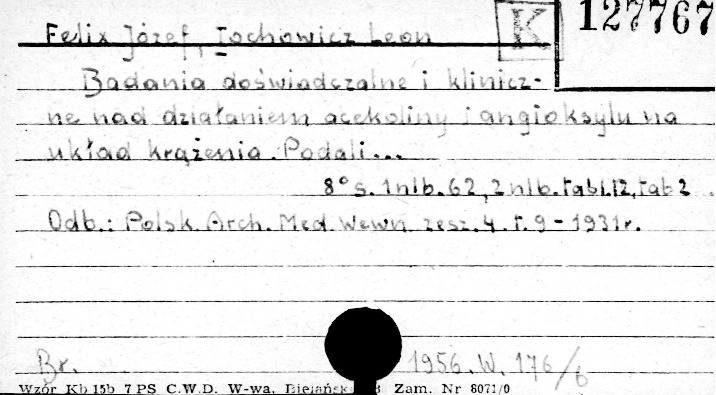 K 127767
Felix Józef, Tochowicz Leon
Badania doświadczalne i klinicz-
ne nad działaniem acekoliny i angioksylu na
układ krążenia. Podali...
8° s. 1 nlb. 62, 2 nlb. tabl. 12, tab 2
Odb.: Polsk. Arch. Med. Wewn. zesz. 4. t. 9 - 1931 r.
Br. 1956. W. 176/6
Wzór Kb 15b 7 PS C.W.D. W-wa, Zam. Nr 8071/0